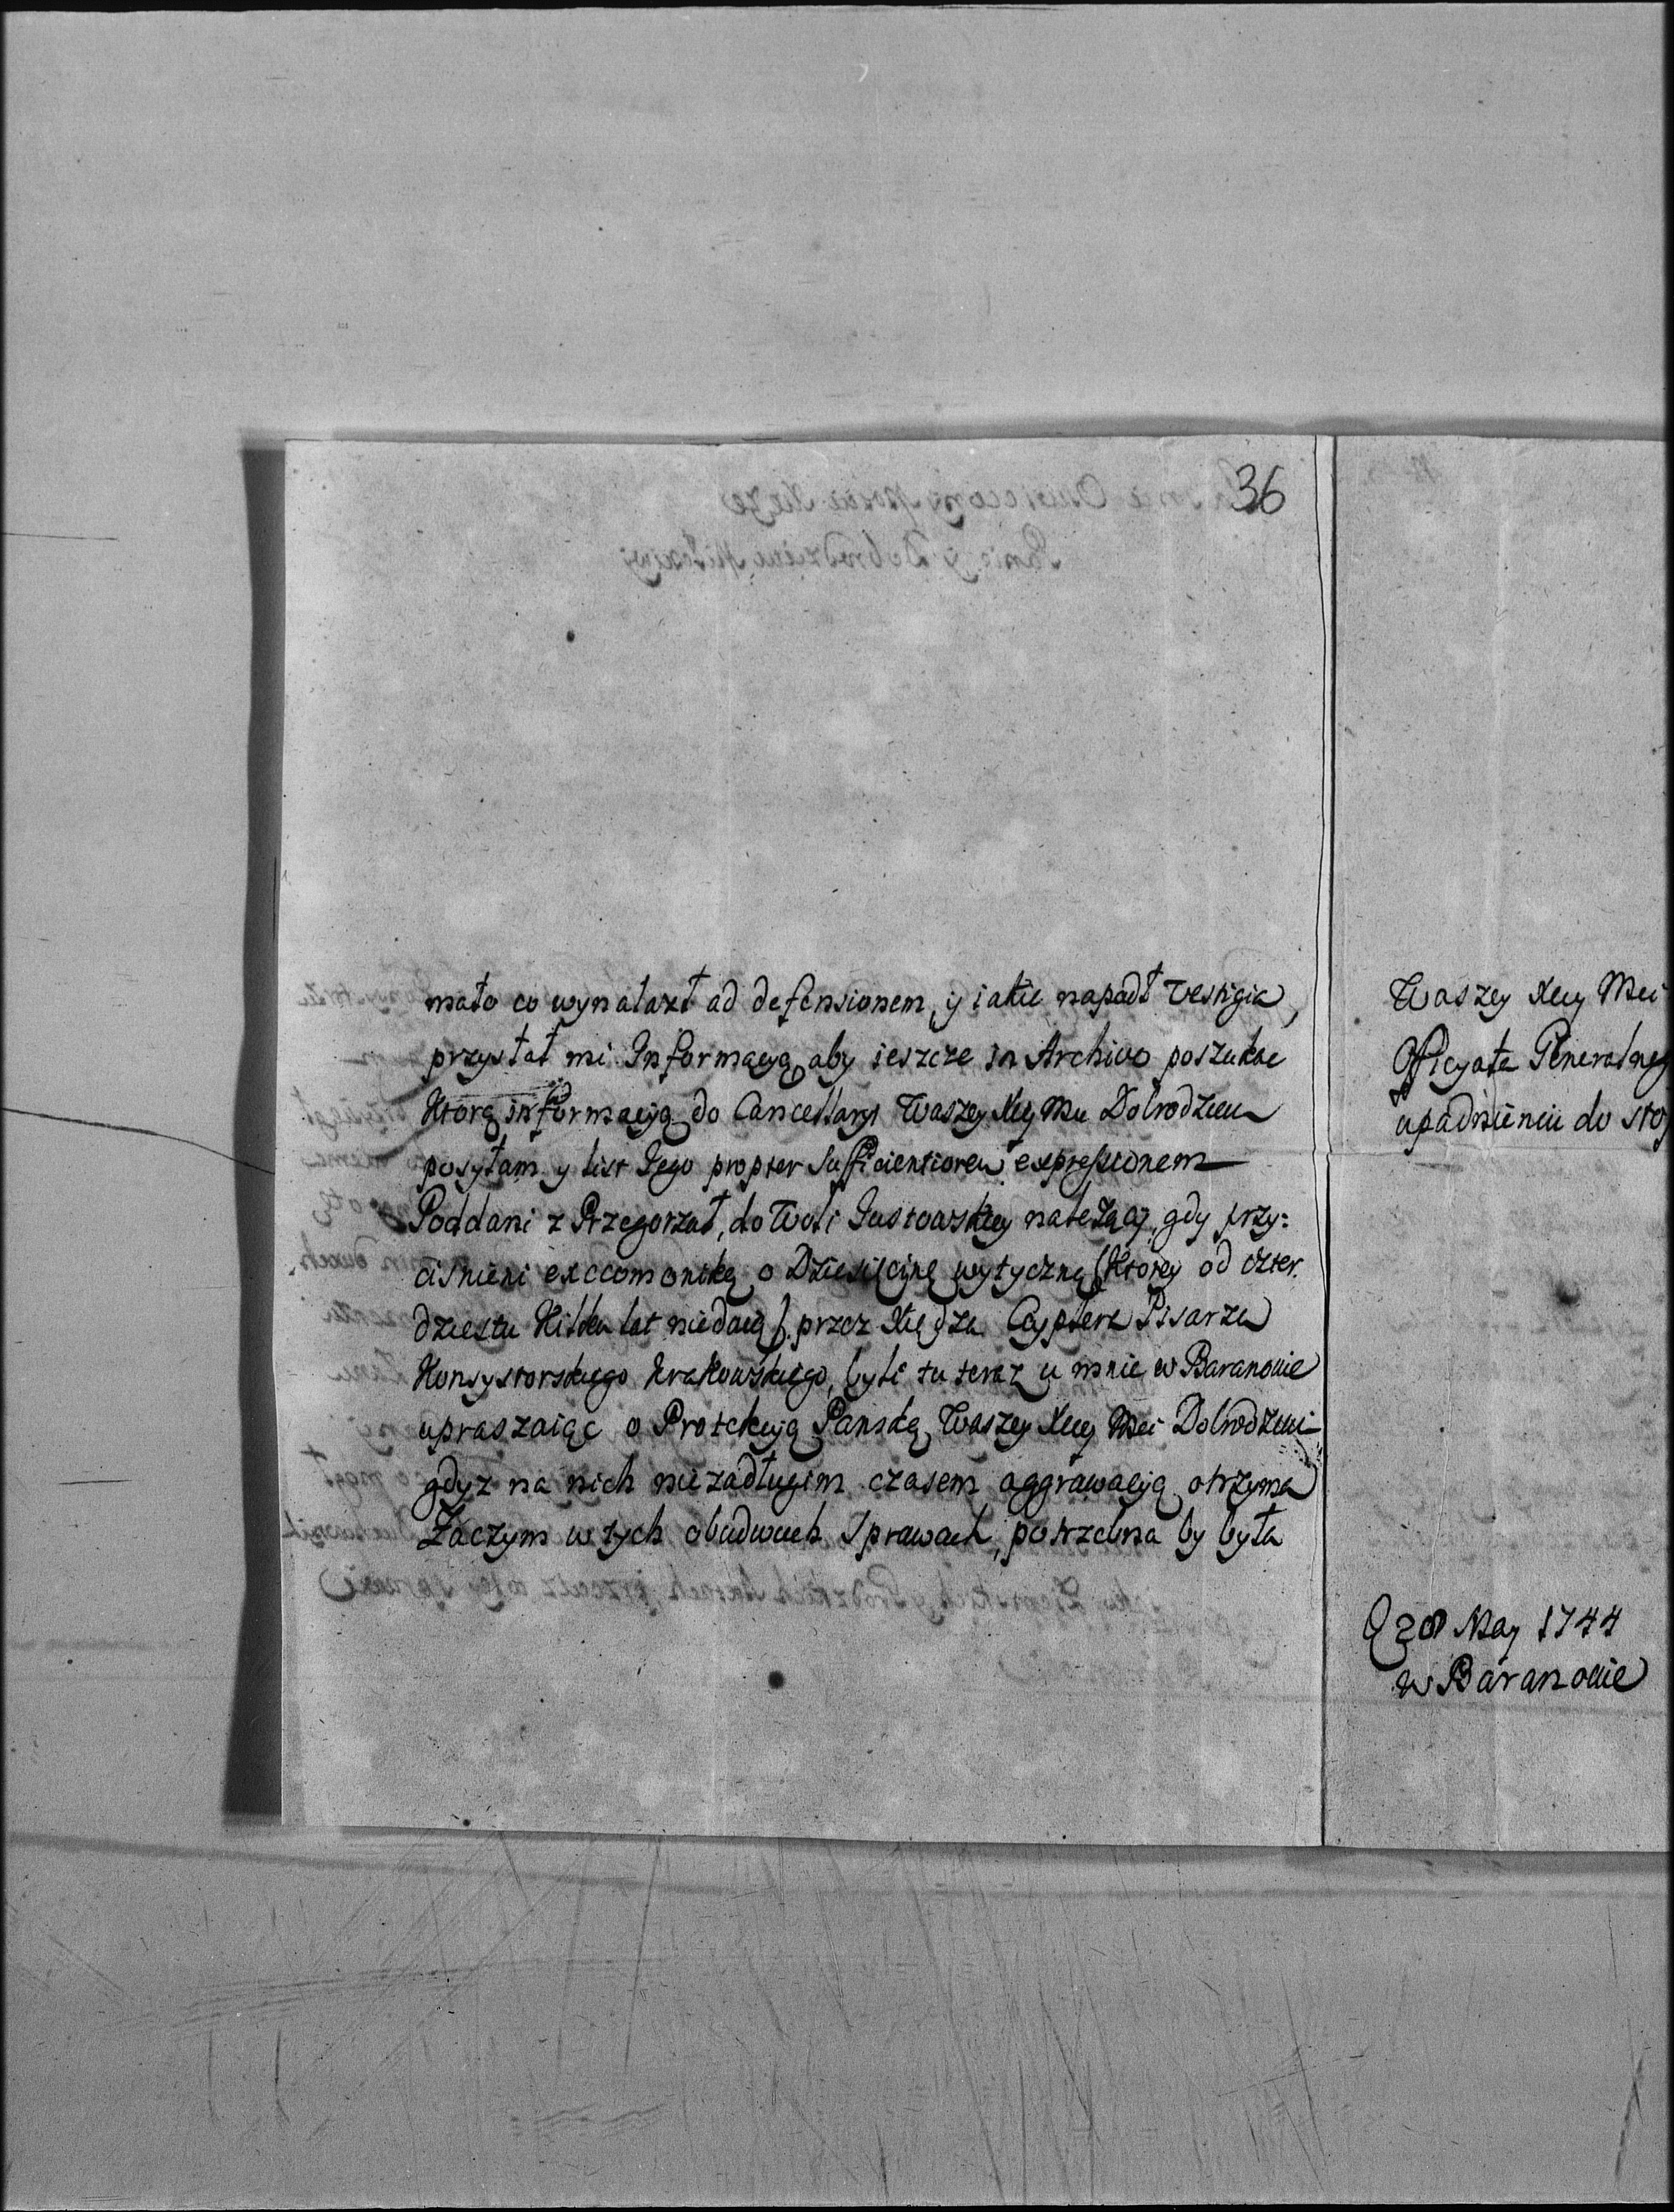 36
mało co wynalazł ad defensionem, y iakie napadł vestigia,
przysłał mi Informacyą, aby ieszcze in Archivo poszukac
Ktorą informacyą do Cancellaryi Waszey Xcey Mci Dobrodzieia
posyłam y list Jego propter sufficientiorem expressionem
Poddani z Przegorzał, do Woli Justowskiey należący, gdy przy:
cisnieni exccomoniką o Dziesięcinę wytyczną (Ktorey od czter.
dziestu Kilku lat niedaią) przez Xiędza Cyplera Pisarza
Konsystorskiego Krakowskiego, byli tu teraz u mnie w Baranowie
upraszaiąc o Protekcyą Panską Waszey Xcey Mci Dobrodzieia
gdyz na nich niezadługim czasem aggrawacyą otrzyma
Zaczym w tych obudwuch Sprawach, potrzebna by była
Waszey Xcey Mci
Oficyała Generalneg
upadnieniu do sto
20 May 1744
w Baranowie